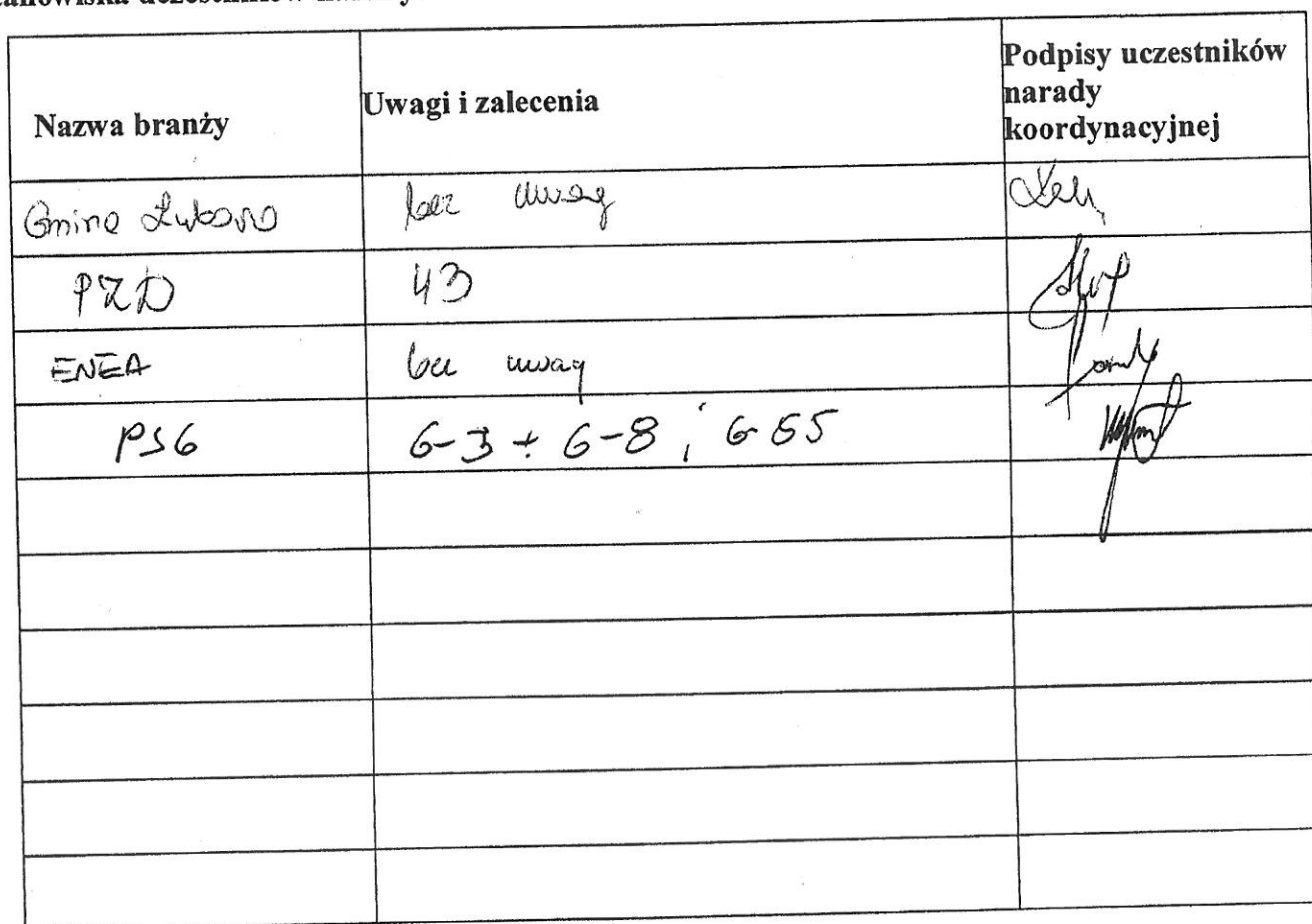 uczestników
Nazwa branży
Uwagi i zalecenia
Podpisy uczestników
narady
koordynacyjnej
Gmina Lubasz
bez uwag
PZD
43
ENEA
bez uwag
PSG
G-3 ÷ G-8 ; G 55